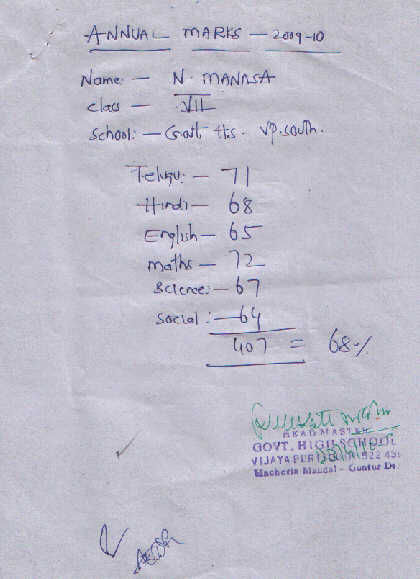 ANNUAL MARKS — 2009-10
Name: — N. MANASA
class — VII
School: — Govt. H.S. V.P. South.
Telugu: — 71
Hindi — 68
English — 65
maths — 72
Science: — 67
Social: — 64
407 = 68%
HEAD MASTER
GOVT. HIGH SCHOOL
VIJAYAPURI 522 43
Macherla Mandal - Guntur Dt